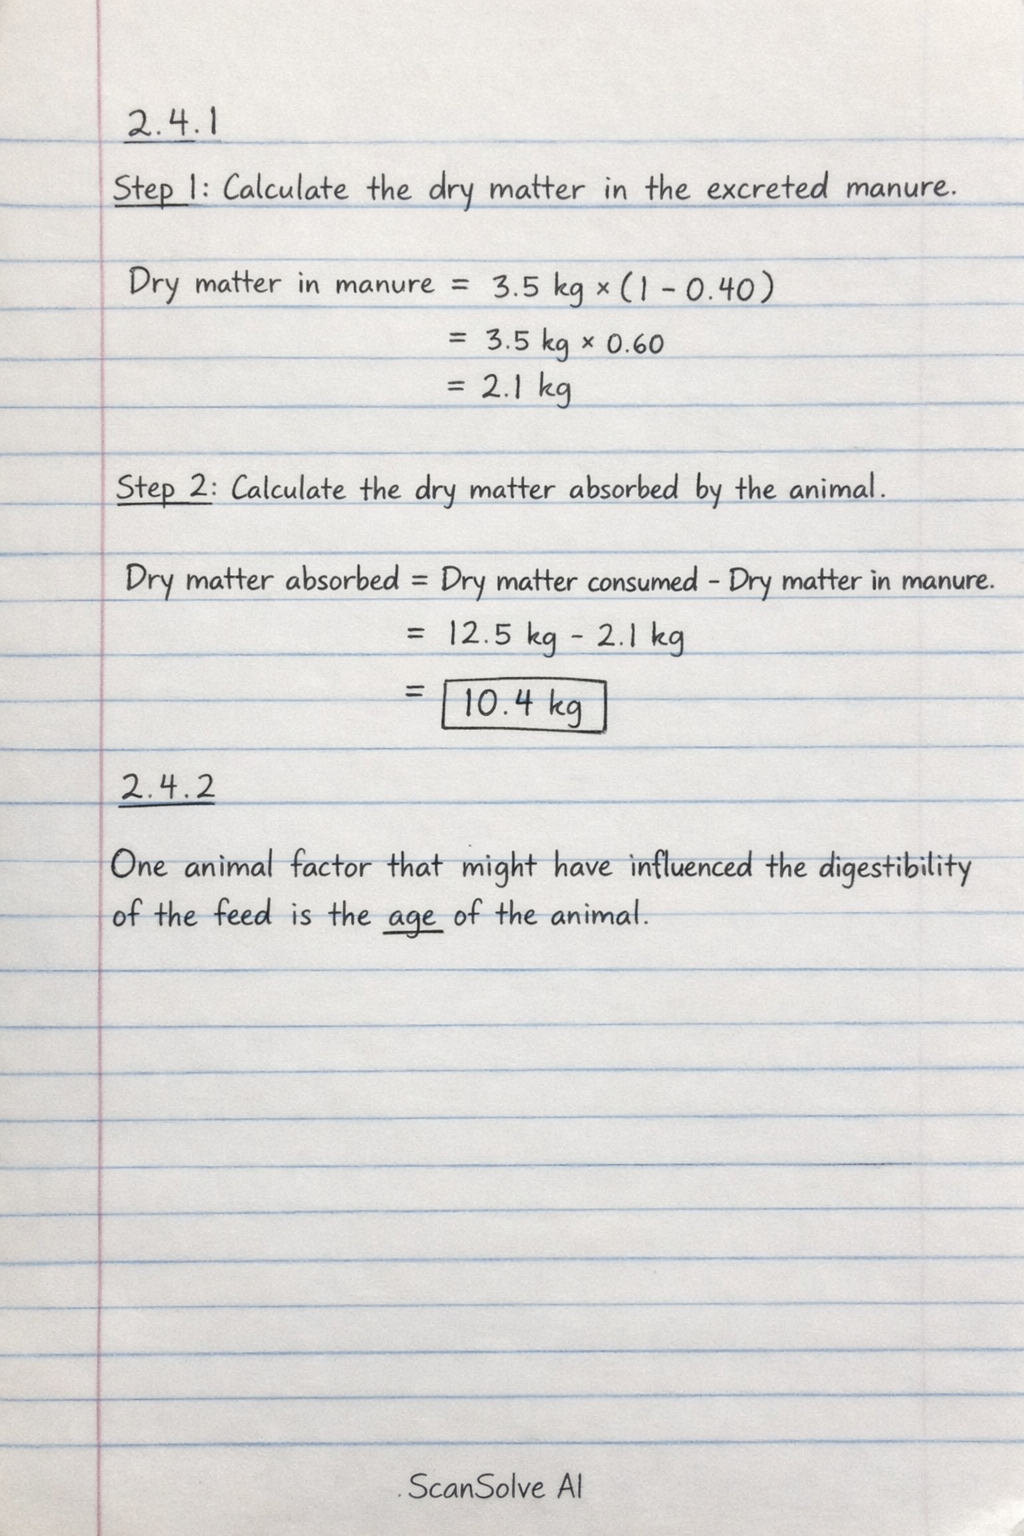 2.4.1
Step 1: Calculate the dry matter in the excreted manure.
Dry matter in manure = 3.5 kg × (1 - 0.40)
= 3.5 kg × 0.60
= 2.1 kg
Step 2: Calculate the dry matter absorbed by the animal.
Dry matter absorbed = Dry matter consumed - Dry matter in manure.
= 12.5 kg - 2.1 kg
= 10.4 kg
2.4.2
One animal factor that might have influenced the digestibility
of the feed is the age of the animal.
ScanSolve AI